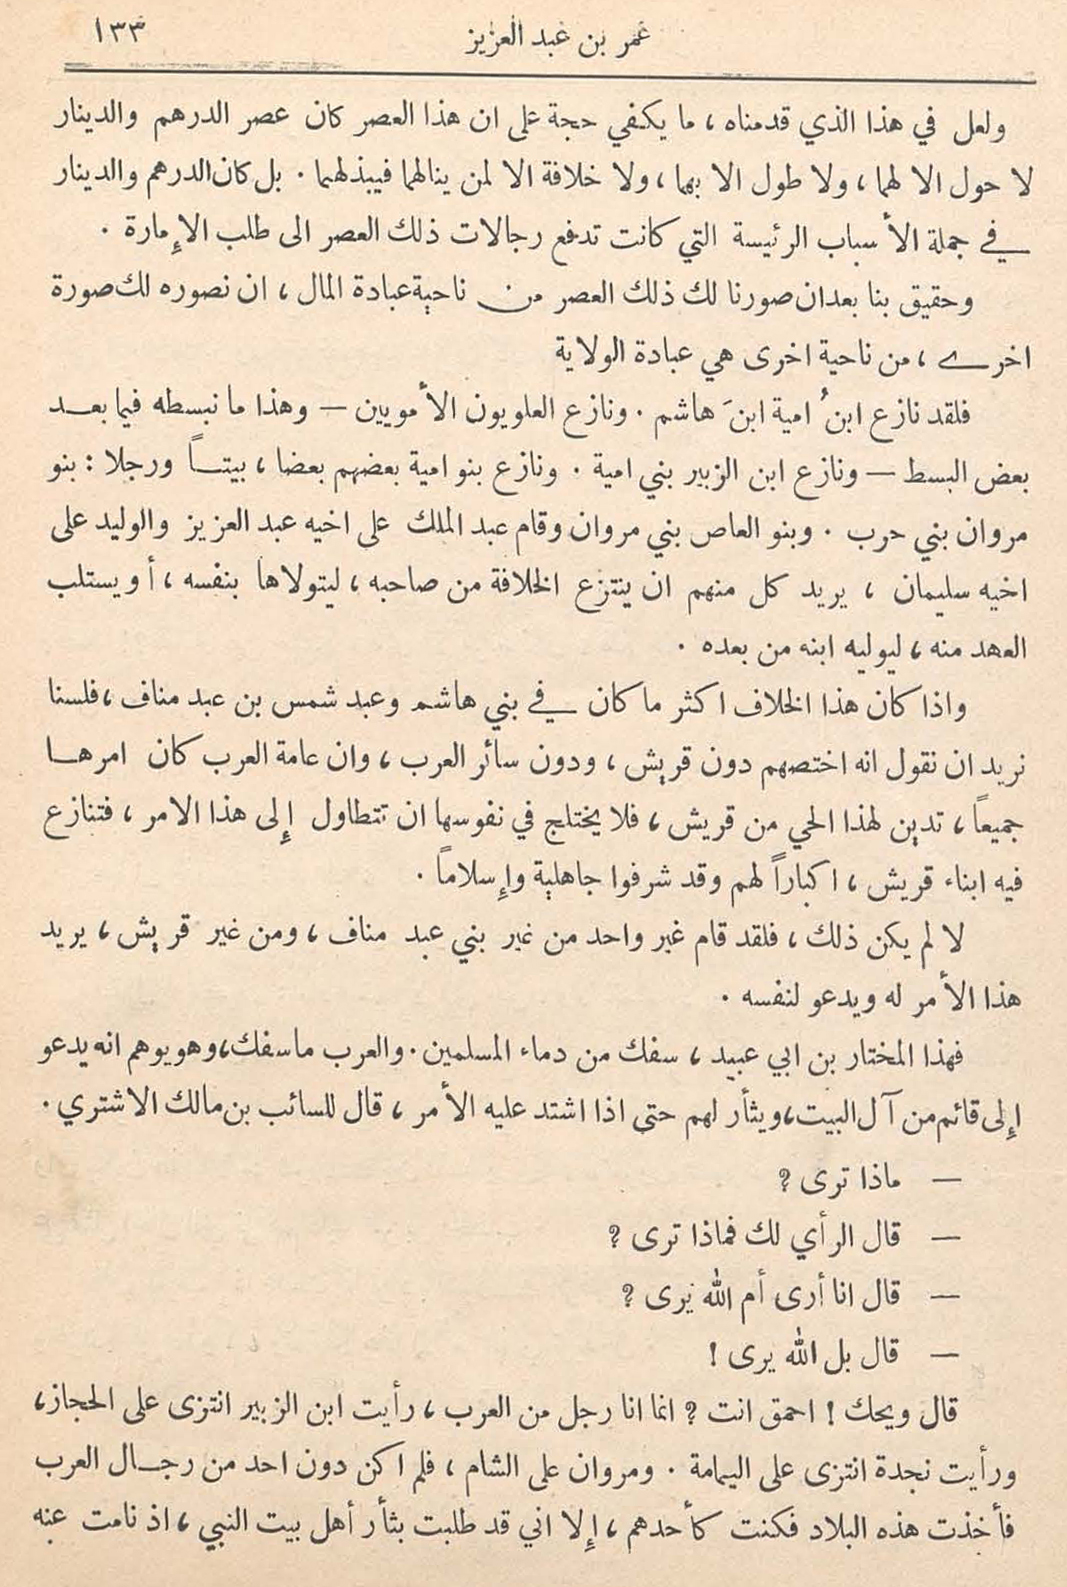 عمر بن عبد العزيز ١٣٣
ولعل في هذا الذي قدمناه ، ما يكفي حجة على ان هذا العصر كان عصر الدرهم والدينار
لا حول الا لهما ، ولا طول الا بهما ، ولا خلافة الا لمن ينالهما فيبذلهما . بل كان الدرهم والدينار
في جملة الأسباب الرئيسة التي كانت تدفع رجالات ذلك العصر الى طلب الإمارة .
وحقيق بنا بعد ان صورنا لك ذلك العصر من ناحية عبادة المال ، ان نصوره لك صورة
اخرى ، من ناحية اخرى هي عبادة الولاية
فلقد نازع ابنُ امية ابنَ هاشم . ونازع العلويون الأمويين — وهذا ما نبسطه فيما بعد
بعض البسط — ونازع ابن الزبير بني امية . ونازع بنو امية بعضهم بعضا ، بيتاً ورجلا : بنو
مروان بني حرب . وبنو العاص بني مروان وقام عبد الملك على اخيه عبد العزيز والوليد على
اخيه سليمان ، يريد كل منهم ان ينتزع الخلافة من صاحبه ، ليتولاها بنفسه ، أو يستلب
العهد منه ، ليوليه ابنه من بعده .
واذا كان هذا الخلاف اكثر ما كان في بني هاشم وعبد شمس بن عبد مناف ، فلسنا
نريد ان نقول انه اختصهم دون قريش ، ودون سائر العرب ، وان عامة العرب كان امرها
جميعاً ، تدين لهذا الحي من قريش ، فلا يختلج في نفوسها ان تتطاول إلى هذا الامر ، فتنازع
فيه ابناء قريش ، اكباراً لهم وقد شرفوا جاهلية وإسلاماً .
لا لم يكن ذلك ، فلقد قام غير واحد من غير بني عبد مناف ، ومن غير قريش ، يريد
هذا الأمر له ويدعو لنفسه .
فهذا المختار بن ابي عبيد ، سفك من دماء المسلمين . والعرب ما سفك ، وهو يوهم انه يدعو
إلى قائم من آل البيت ، ويثأر لهم حتى اذا اشتد عليه الأمر ، قال للسائب بن مالك الاشتري .
— ماذا ترى ؟
— قال الرأي لك فماذا ترى ؟
— قال انا أرى أم الله يرى ؟
— قال بل الله يرى !
قال ويحك ! احمق انت ؟ انما انا رجل من العرب ، رأيت ابن الزبير انتزى على الحجاز ،
ورأيت نجدة انتزى على اليمامة . ومروان على الشام ، فلم اكن دون احد من رجال العرب
فأخذت هذه البلاد فكنت كأحدهم ، إلا اني قد طلبت بثأر أهل بيت النبي ، اذ نامت عنه